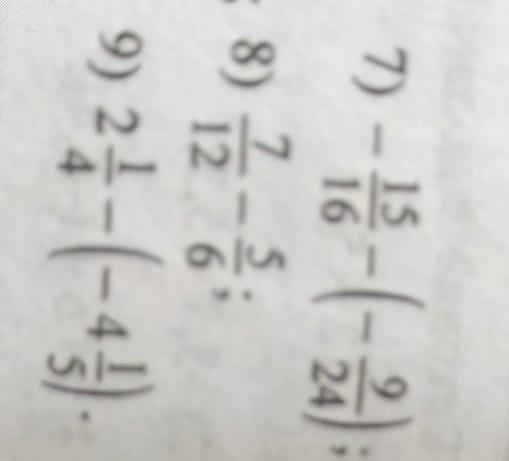 7) $-\frac{15}{16} - \left(-\frac{9}{24}\right)$;
8) $\frac{7}{12} - \frac{5}{6}$;
9) $2\frac{1}{4} - \left(-4\frac{1}{5}\right)$.